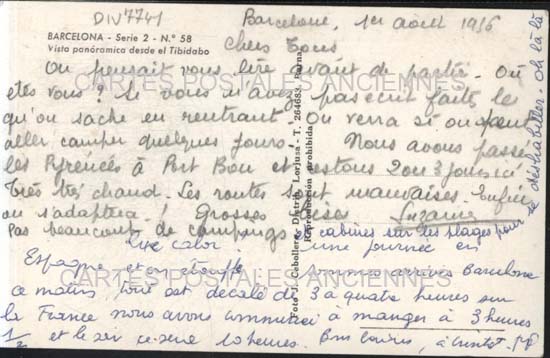 DIV7741
BARCELONA - Serie 2 - N.º 58
Vista panorámica desde el Tibidabo
Barcelone, 1er août 1956
Chers Tous
On pensait vous lire avant de partir. Où
êtes vous? Si vous n'avez pas écrit faites le
qu'on sache en rentrant. On verra si on peut
aller camper quelques jours. Nous avons passé
les Pyrénées à Port Bou et restons 2 ou 3 jours ici
Très très chaud. Les routes sont mauvaises. Enfin
on s'adaptera! Grosses bises Suzanne
Pas beaucoup de campings et cabines sur les plages pour
se déshabiller. Oh là là
une journée en
Espagne et on étouffe sommes arrivés Barcelone
ce matin tout est décalé de 3 à quatre heures sur
la France nous avons commencé à manger à 3 heures
1/2 et le soir ce sera 10 heures. Bons baisers, à bientôt.
Foto J. Cebollero, Distrib. Lorjusa - T. 264683, Barna
Reproducción prohibida
CARTES POSTALES ANCIENNES
CARTES POSTALES ANCIENNES